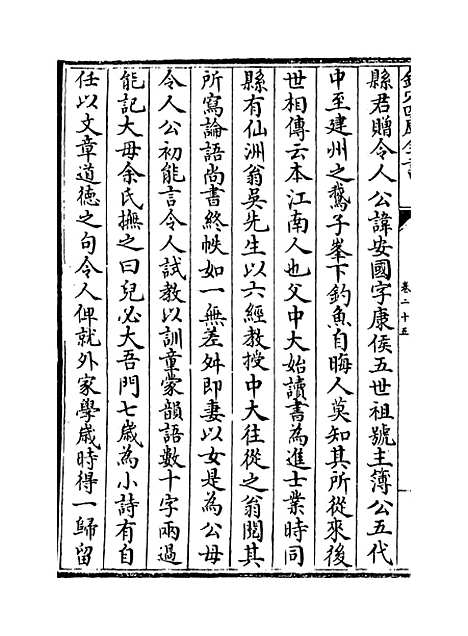 欽定四庫全書
卷二十五
縣君贈令人公諱安國字康侯五世祖號主簿公五代
中至建州之鵞子峯下釣魚自晦人莫知其所從來後
世相傳云本江南人也父中大始讀書為進士業時同
縣有仙洲翁吳先生以六經教授中大往從之翁閱其
所寫論語尚書終帙如一無差舛即妻以女是為公母
令人公初能言令人試教以訓童蒙韻語數十字兩過
能記大母余氏撫之曰兒必大吾門七歲為小詩有自
任以文章道德之句令人俾就外家學歲時得一歸留